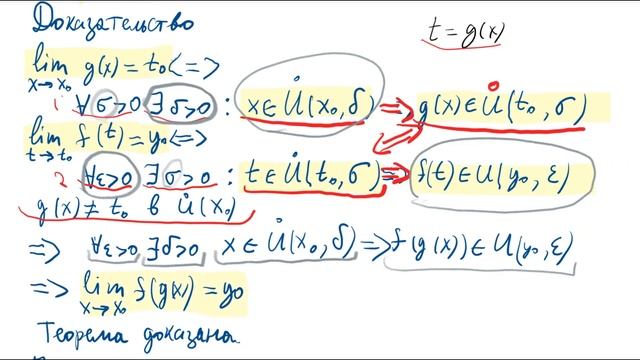 Доказательство
t = g(x)
lim g(x) = t₀ <=>
x→x₀
1 ∀σ>0 ∃δ>0 : x∈U̇(x₀,δ) => g(x)∈U̇(t₀,σ)
lim f(t) = y₀ <=>
t→t₀
2 ∀ε>0 ∃σ>0 : t∈U̇(t₀,σ) => f(t)∈U(y₀,ε)
g(x)≠t₀ в U̇(x₀)
=> ∀ε>0 ∃δ>0 x∈U̇(x₀,δ) => f(g(x))∈U(y₀,ε)
=> lim f(g(x)) = y₀
x→x₀
Теорема доказана.